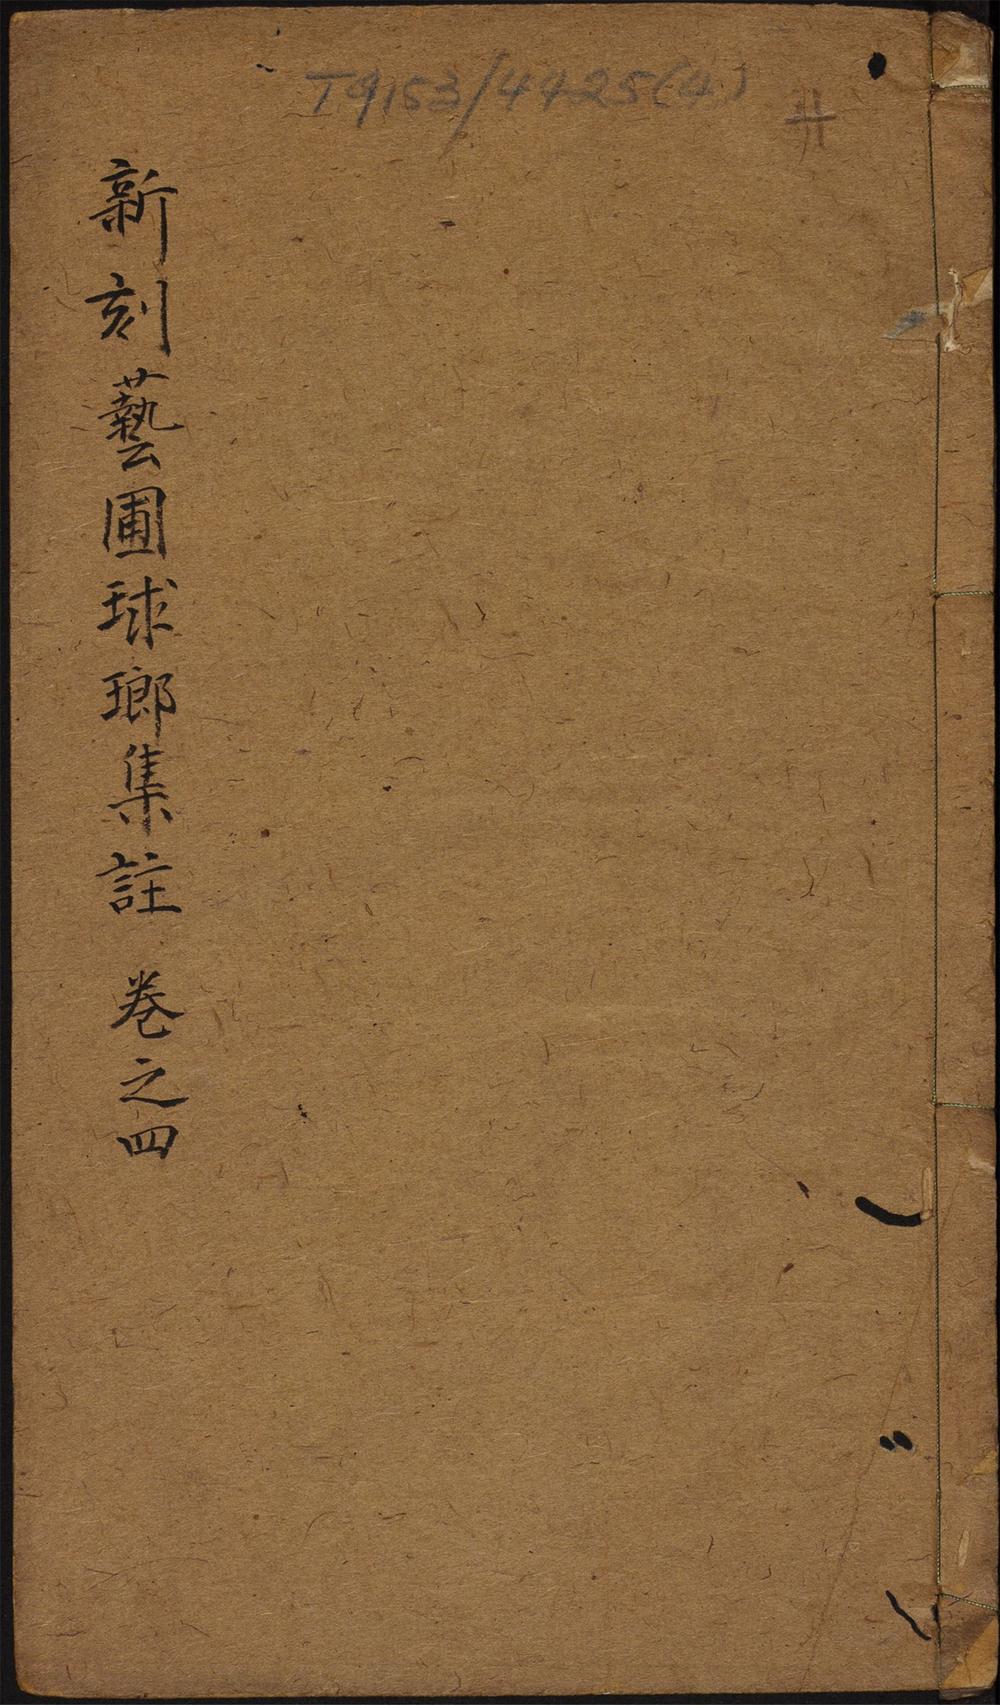 T9153/4425(4)
新刻藝圃球瑯集註 卷之四